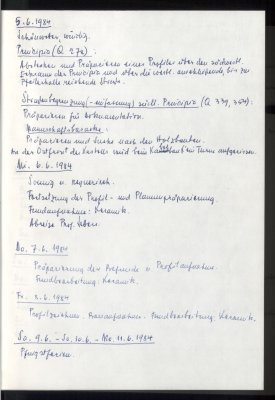 5.6.1984
Schönwetter, windig.
Principia (Q 270):
Abstecken und Präparieren eines Profiles über den südwestl.
Eckraum der Principia und über die westl. anschließende, bis zur
reichende Straße.
Straßenbegrenzung südl. Principia (Q 339, 340):
Präparieren für Dokumentation.
Mannschaftsbaracke:
Präparieren und Suche nach den Holzbauten.
An der Ostfront des Kastells wird beim Turm aufgerissen.
Mi. 6.6.1984
Sonnig u. regnerisch.
Fortsetzung der Profil- und Planumpräparierung.
Fundaufnahme: Keramik.
Abreise Prof.
Do. 7.6.1984
Präparierung der Befunde u. Profilaufnahme.
Fundbearbeitung: Keramik.
Fr. 8.6.1984
Profilzeichnen. Fundbearbeitung: Keramik.
Sa. 9.6. - So. 10.6. - Mo. 11.6.1984
Pfingstferien.